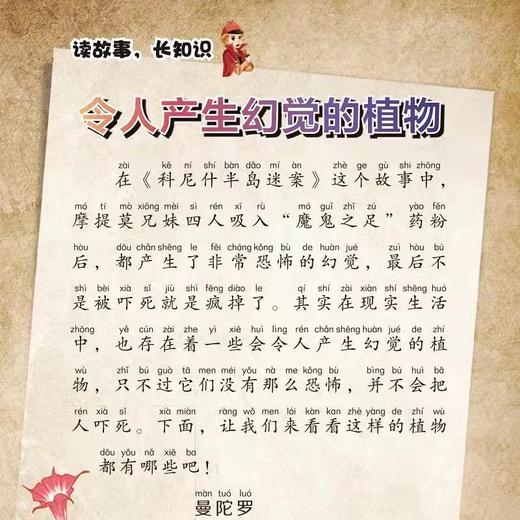 读故事，长知识
令人产生幻觉的植物
zài kē ní shí bàn dǎo mí àn zhè ge gù shi zhōng
在《科尼什半岛迷案》这个故事中，
mó tí mò xiōng mèi sì rén xī rù mó guǐ zhī zú yào fěn
摩提莫兄妹四人吸入“魔鬼之足”药粉
hòu dōu chǎn shēng le fēi cháng kǒng bù de huàn jué zuì hòu bú
后，都产生了非常恐怖的幻觉，最后不
shì bèi xià sǐ jiù shì fēng diào le qí shí zài xiàn shí shēng huó
是被吓死就是疯掉了。其实在现实生活
zhōng yě cún zài zhe yì xiē huì lìng rén chǎn shēng huàn jué de zhí
中，也存在着一些会令人产生幻觉的植
wù zhǐ bú guò tā men méi yǒu nà me kǒng bù bìng bú huì bǎ
物，只不过它们没有那么恐怖，并不会把
rén xià sǐ xià miàn ràng wǒ men lái kàn kan zhè yàng de zhí wù
人吓死。下面，让我们来看看这样的植物
dōu yǒu nǎ xiē ba
都有哪些吧！
màn tuó luó
曼陀罗